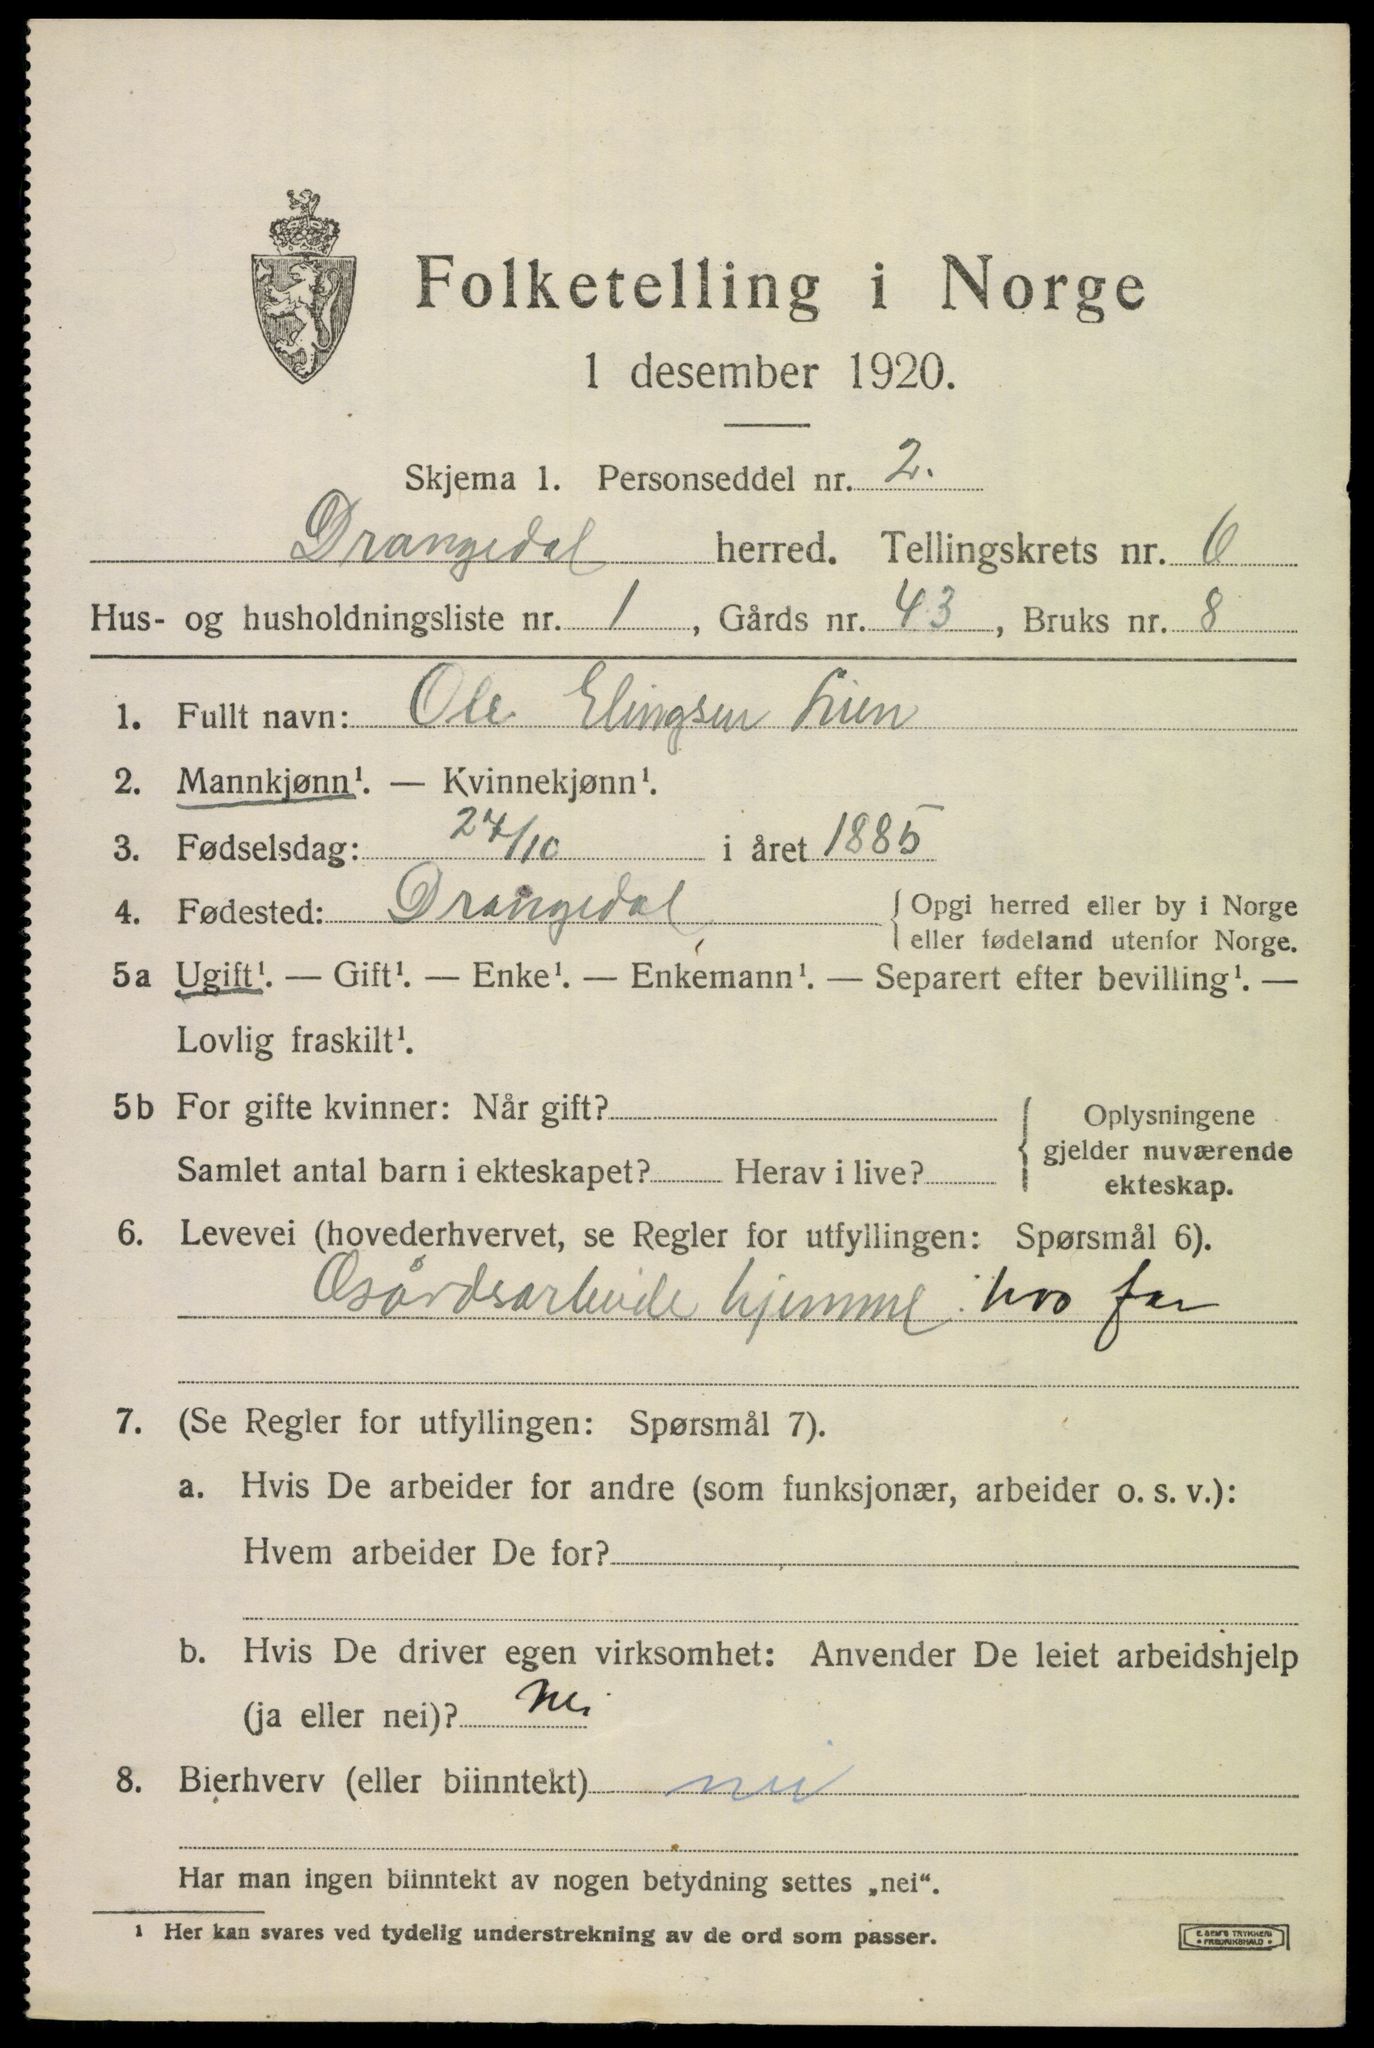 Folketelling i Norge
1 desember 1920.
Skjema 1. Personseddel nr. 2.
Drangedal herred. Tellingskrets nr. 6
Hus- og husholdningsliste nr. 1, Gårds nr. 43, Bruks nr. 8
1. Fullt navn: Ole Elingsen Lien
2. Mannkjønn¹. — Kvinnekjønn¹.
3. Fødselsdag: 24/10 i året 1885
4. Fødested: Drangedal { Opgi herred eller by i Norge
eller fødeland utenfor Norge.
5a Ugift¹. — Gift¹. — Enke¹. — Enkemann¹. — Separert efter bevilling¹. —
Lovlig fraskilt¹.
5b For gifte kvinner: Når gift? { Oplysningene
gjelder nuværende
Samlet antal barn i ekteskapet? Herav i live? ekteskap.
6. Levevei (hovederhvervet, se Regler for utfyllingen: Spørsmål 6).
Gårdsarbeide hjemme hos far
7. (Se Regler for utfyllingen: Spørsmål 7).
a. Hvis De arbeider for andre (som funksjonær, arbeider o. s. v.):
Hvem arbeider De for?
b. Hvis De driver egen virksomhet: Anvender De leiet arbeidshjelp
(ja eller nei)? Nei
8. Bierhverv (eller biinntekt) nei
Har man ingen biinntekt av nogen betydning settes „nei“.
¹ Her kan svares ved tydelig understrekning av de ord som passer.
E. SEM'S TRYKKERI
• FREDRIKSHALD •